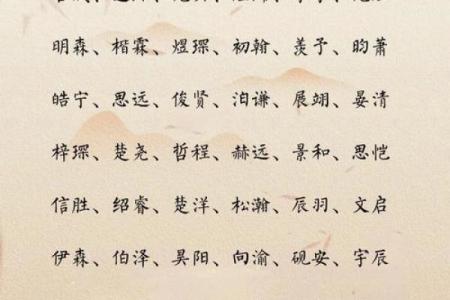 明森、楷霖、煜琛、初翰、羡予、昀萧
皓宁、思远、俊贤、洎谦、展翊、晏清
梓琛、楚尧、哲程、赫远、景和、思恺
信胜、绍睿、楚洋、松瀚、辰羽、文启
伊森、伯泽、昊阳、向渝、砚安、宇辰